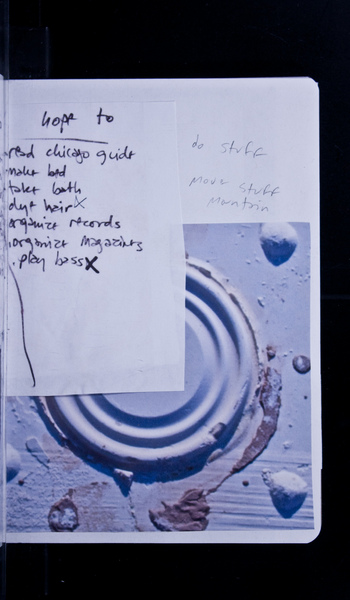 hope to
read chicago guide
make bed
take bath
dye hair X
organize records
organize magazines
. play bass X
do stuff
move stuff
mountain